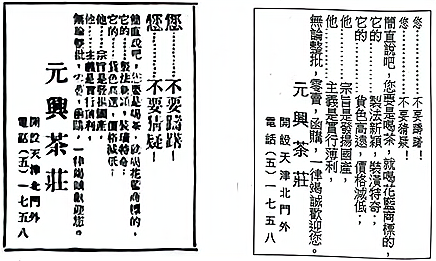 您……不要躊躇!
您……不要猜疑!
簡直說吧,您要是喝茶,就喝花籃商標的,
它的……製法新穎,裝潢特奇;
它的……貨色高遠,價格減低;
他……宗旨是發揚國產,
他……主義是實行薄利,
無論整批,零賣,函購,一律竭誠歡迎您。
元興茶莊
開設天津北門外
電話(五)一七五八
您………不要躊躇!
您………不要猜疑!
簡直說吧,您要是喝茶,就喝花籃商標的,
它的………製法新穎,裝潢特奇;
它的………貨色高遠,價格減低;
他………宗旨是發揚國產,
他………主義是實行薄利,
無論整批,零賣,函購,一律竭誠歡迎您。
元興茶莊
開設天津北門外
電話(五)一七五八